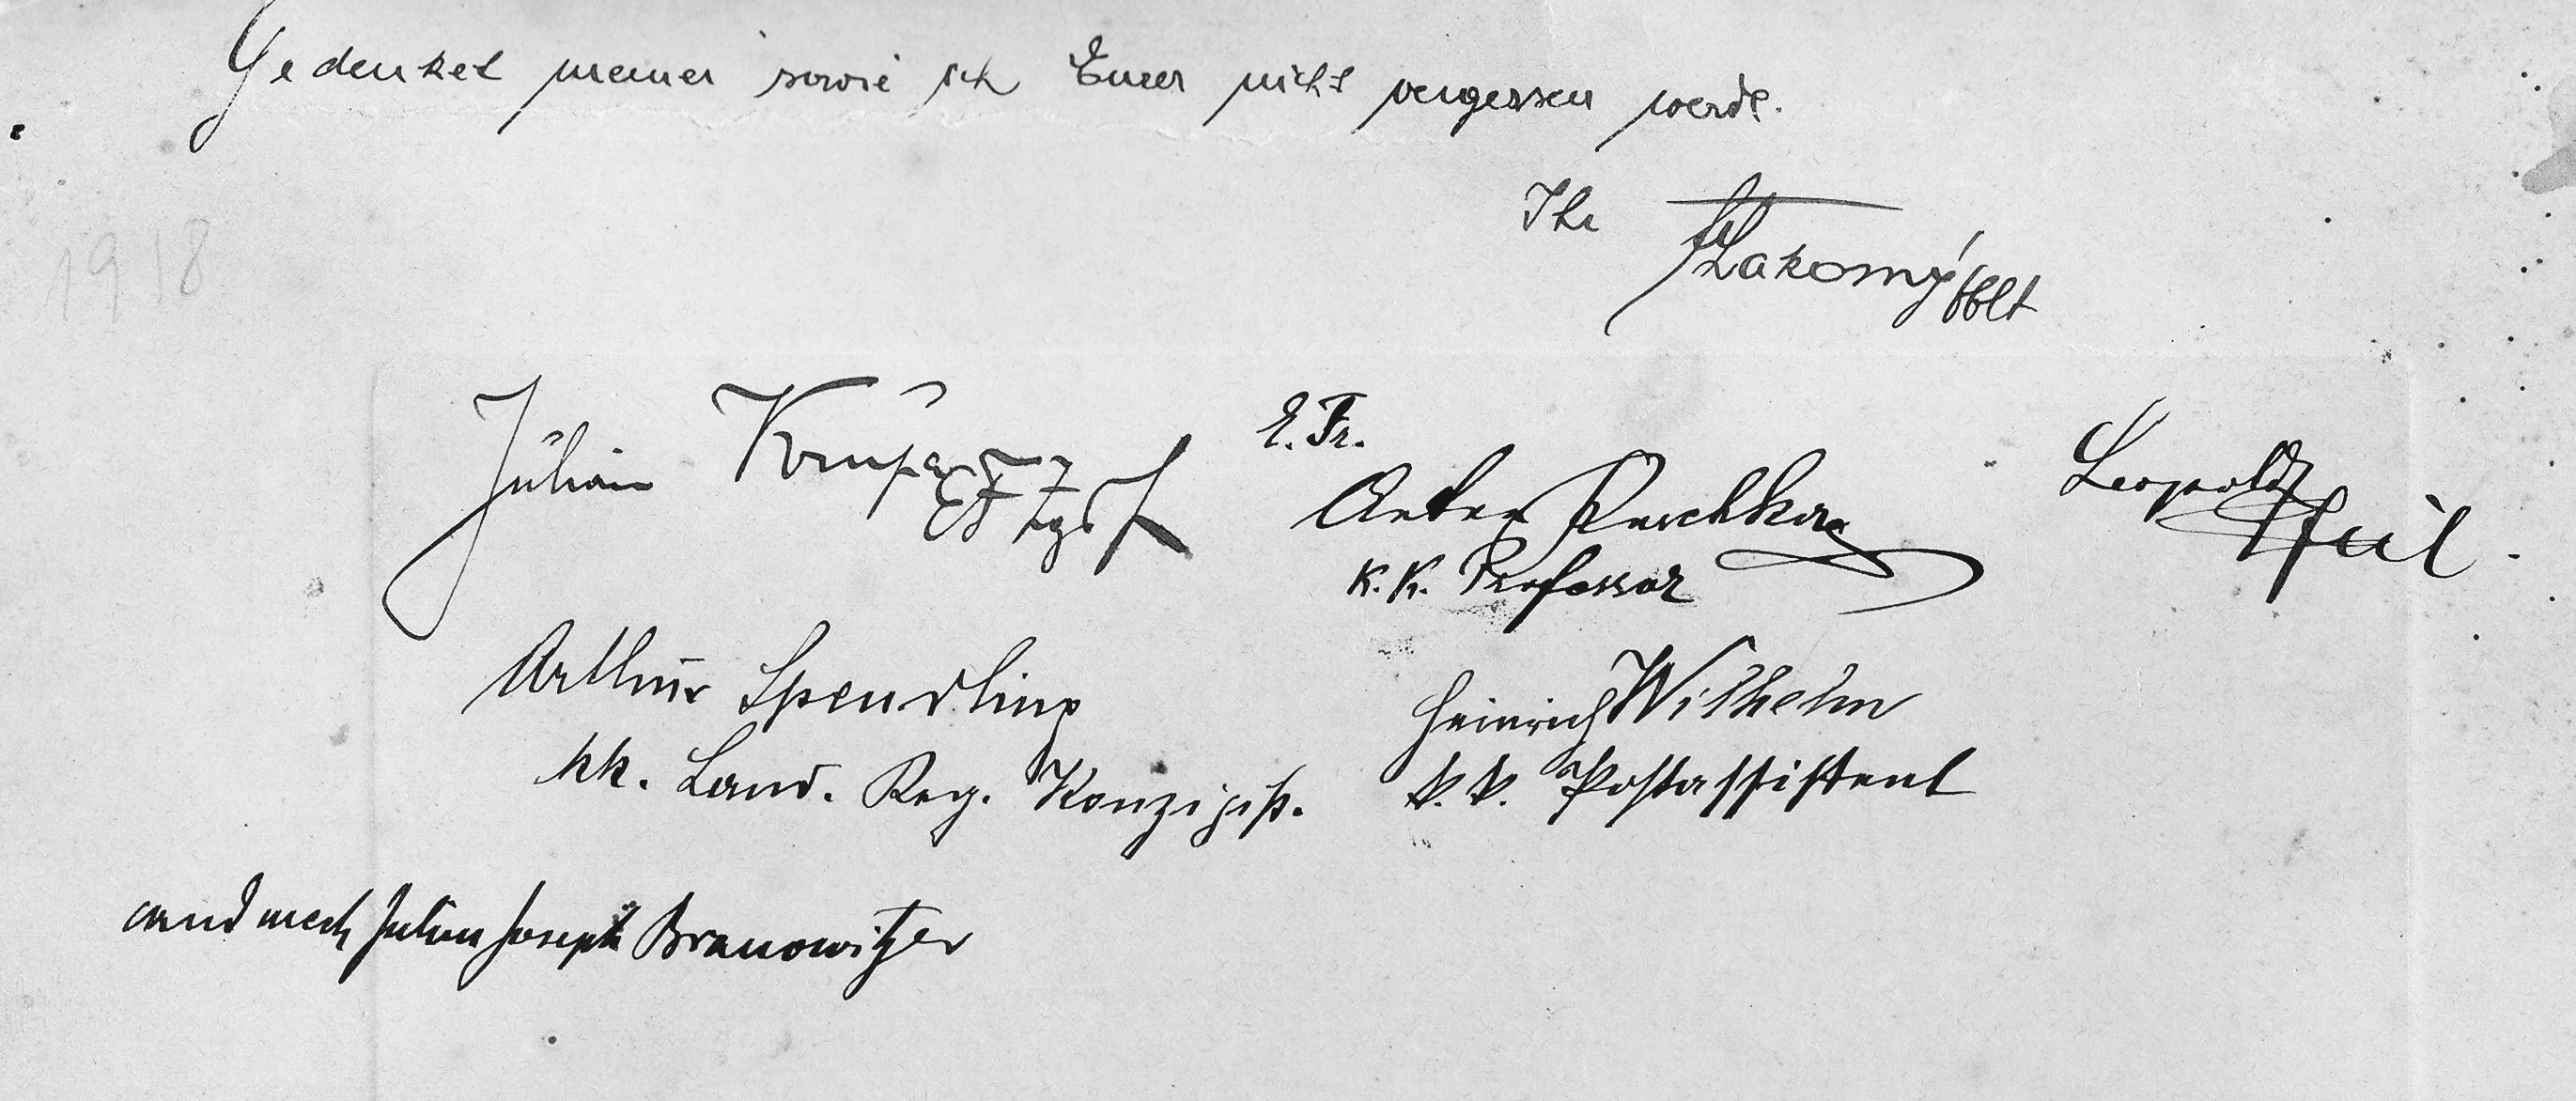 Gedenket meiner sowie ich Eurer nicht vergessen werde.
Ihr Lakomý
1918
Julian Krupa EF Zgsf
E. Fr.
Anton
k. k. Professor
Leopold Pfeil.
Arthur Spendling
kk. Land. Reg. Konzipist.
Heinrich Wilhelm
k. k. Postassistent
cand mech Julius Joseph Branowitzer